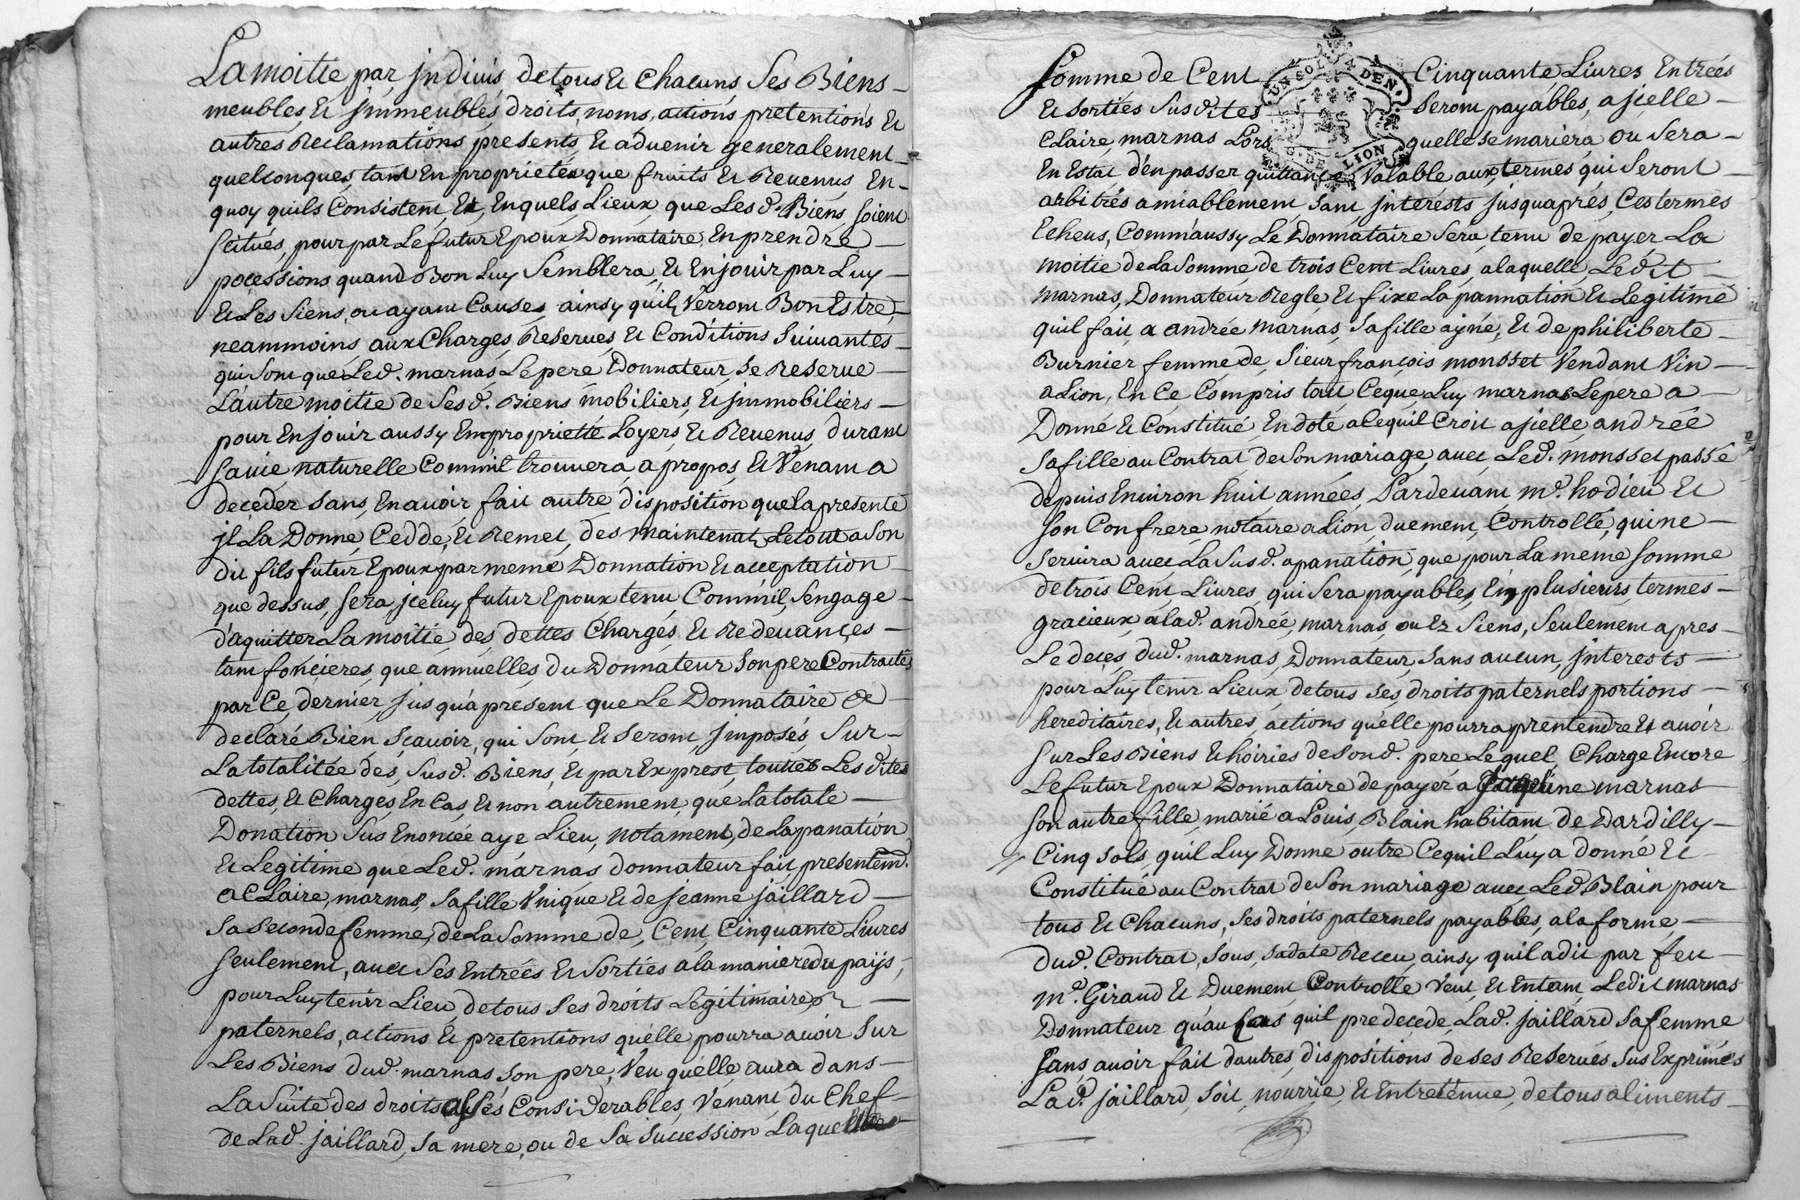 La moitie par jndiuis, de tous & Chacuns Ses Biens
meubles, & jmmeubles, droits, noms, actions pretentions &
autres Reclamations presents, & aduenir generalement
quelconques, tant En proprietés que fruits & Reuenus, En
quoy quils Consistent, Et, Enquels Lieux que Lesd. Biens, soient
scitués, pour par Le futur Epoux Donnataire En prendre
pocessions quand Bon Luy Semblera, & En jouir par Luy
& Les Siens, ou ayant Causes, ainsy quil, Verront Bon Estre,
neammoins aux Charges, Reserues, & Conditions Suiuantes
qui Sont que Led. marnas, Le pere Donnateur, se Reserue
L'autre moitie de Sesd. Biens mobiliers, & jmmobiliers
pour En jouir aussy En propriette Loyers, & Reuenus, durant
sa uie naturelle Comm'il trouuera, a propos, & Venant a
deceder sans, En auoir fait autre, disposition que la presente
jl La Donne, Cedde, & Remet, des maintenat, Le tout a Son
dit fils futur Epoux par meme Donnation & acceptation
que dessus, sera, jceluy futur Epoux tenu Comm'il, s'engage
d'aquitter La moitie, des, dettes Charges, & Redeuançes
tant fonçieres, que annuelles du Donnateur Son pere Contractés
par Ce, dernier, jusqu'a present que Le Donnataire &
declaré Bien sçauoir, qui Sont & Seront, jmposés Sur
La totalitée des, Susd. Biens, & par Exprest, touttes Les dites
dettes, & Charges, En Cas, & non autrement, que La totale
Donation Sus Enoncée aye Lieu, notament, de La panation
& Legitime que Led. marnas donnateur fait presentem.
a Claire, marnas, sa fille Vnique & de jeanne jaillard
Sa Seconde femme, de La Somme de, Cent, Cinquante Livres
seulement, auec Ses Entrées & Sorties a la maniere du pays,
pour Luy tenir Lieu, de tous Ses droits Legitimaires
paternels, actions & pretentions qu'elle pourra auoir Sur
Les Biens dud. marnas son pere, Veu qu'elle aura dans
La Suite des droits assés Considerables, Venant, du Chef
de Lad. jaillard, sa mere, ou de Sa Succession Laquelle
Somme de Cent Cinquante Livres Entrées
& Sorties Susdites Seront payables, a jcelle
Claire, marnas Lors quelle se mariera, ou Sera
En Estat d'en passer quittance Valable aux termes, qui Seront
arbitrés amiablement, sans jnterests jusqu'aprés, Ces termes
Echeus, Comm'aussy Le Donnataire Sera tenu de payer La
moitie de La Somme de trois Cent Livres, a laquelle Ledit
marnas, Donnateur Regle & fixe La pannation & Legitime
quil fait, a andrée marnas, Sa fille ayné, & de philiberte
Burnier femme de, Sieur françois monsset Vendant Vin
a Lion, En Ce Compris tout Ceque Luy marnas Le pere a
Donné & Constitué, En dote a Cequil Croit a jcelle, andrée
sa fille au Contrat de Son mariage, auec Led. monsset passé
depuis Enuiron huit années, Pardeuant mᵉ. hodieu &
son Confrere, notaire a Lion, duement, Controllé, qui ne
Seruira auec La Susd. apanation, que pour La meme somme
de trois Cent Livres, qui Sera payables, En plusieurs, termes
gracieux, a lad. andrée, marnas, ou Es Siens, Seulement apres
Le deçes dud. marnas, Donnateur, sans aucun, jnterests
pour Luy tenir Lieux de tous ses, droits paternels portions
hereditaires, & autres, actions qu'elle pourra prentendre & auoir
sur Les Biens & hoiries de Sond. pere Lequel, Charge Encore
Le futur Epoux Donnataire de payer a Jaqueline marnas
Son autre fille, marié a Louis, Blain habitant de Dardilly
Cinq Sols, quil Luy Donne outre Cequil Luy a donné &
Constitué au Contrat de Son mariage auec Led. Blain pour
tous & Chacuns, Ses droits paternels payables, a la forme
dud. Contrat, sous, sa date Receu, ainsy quil a dit par feu
mᵉ. Giraud & Duement Controllé Veut & Entant Ledit marnas
Donnateur qu'au Cas quil predecede Lad. jaillard sa femme
sans, auoir fait d'autres, dispositions de ses Reserues Sus Exprimés
Lad. jaillard, soit, nourrie, & Entretenue, de tous aliments
UN SOL 4 DEN
G. DE LION